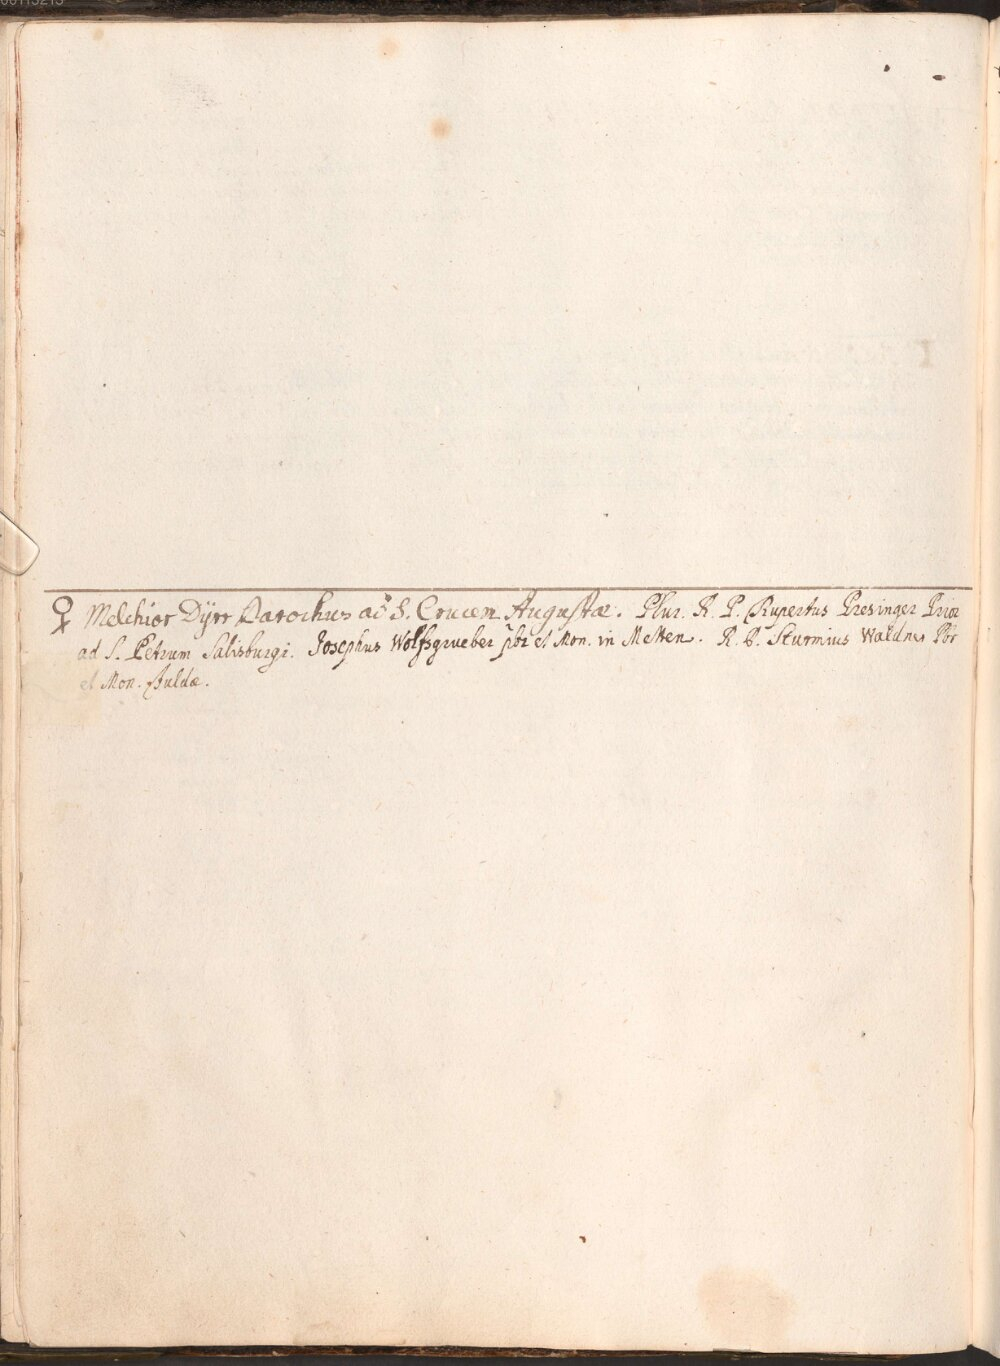 00113215
♀ Melchior Dÿrr Parochus ad S. Crucem Augustæ. Plur. R. P. Rupertus Presinger Prior
ad S. Petrum Salisburgi. Josephus Wolfsgrueber pbr et Mon. in Metten. R. P. Sturmius Waldner Pbr
et Mon. Fuldæ.